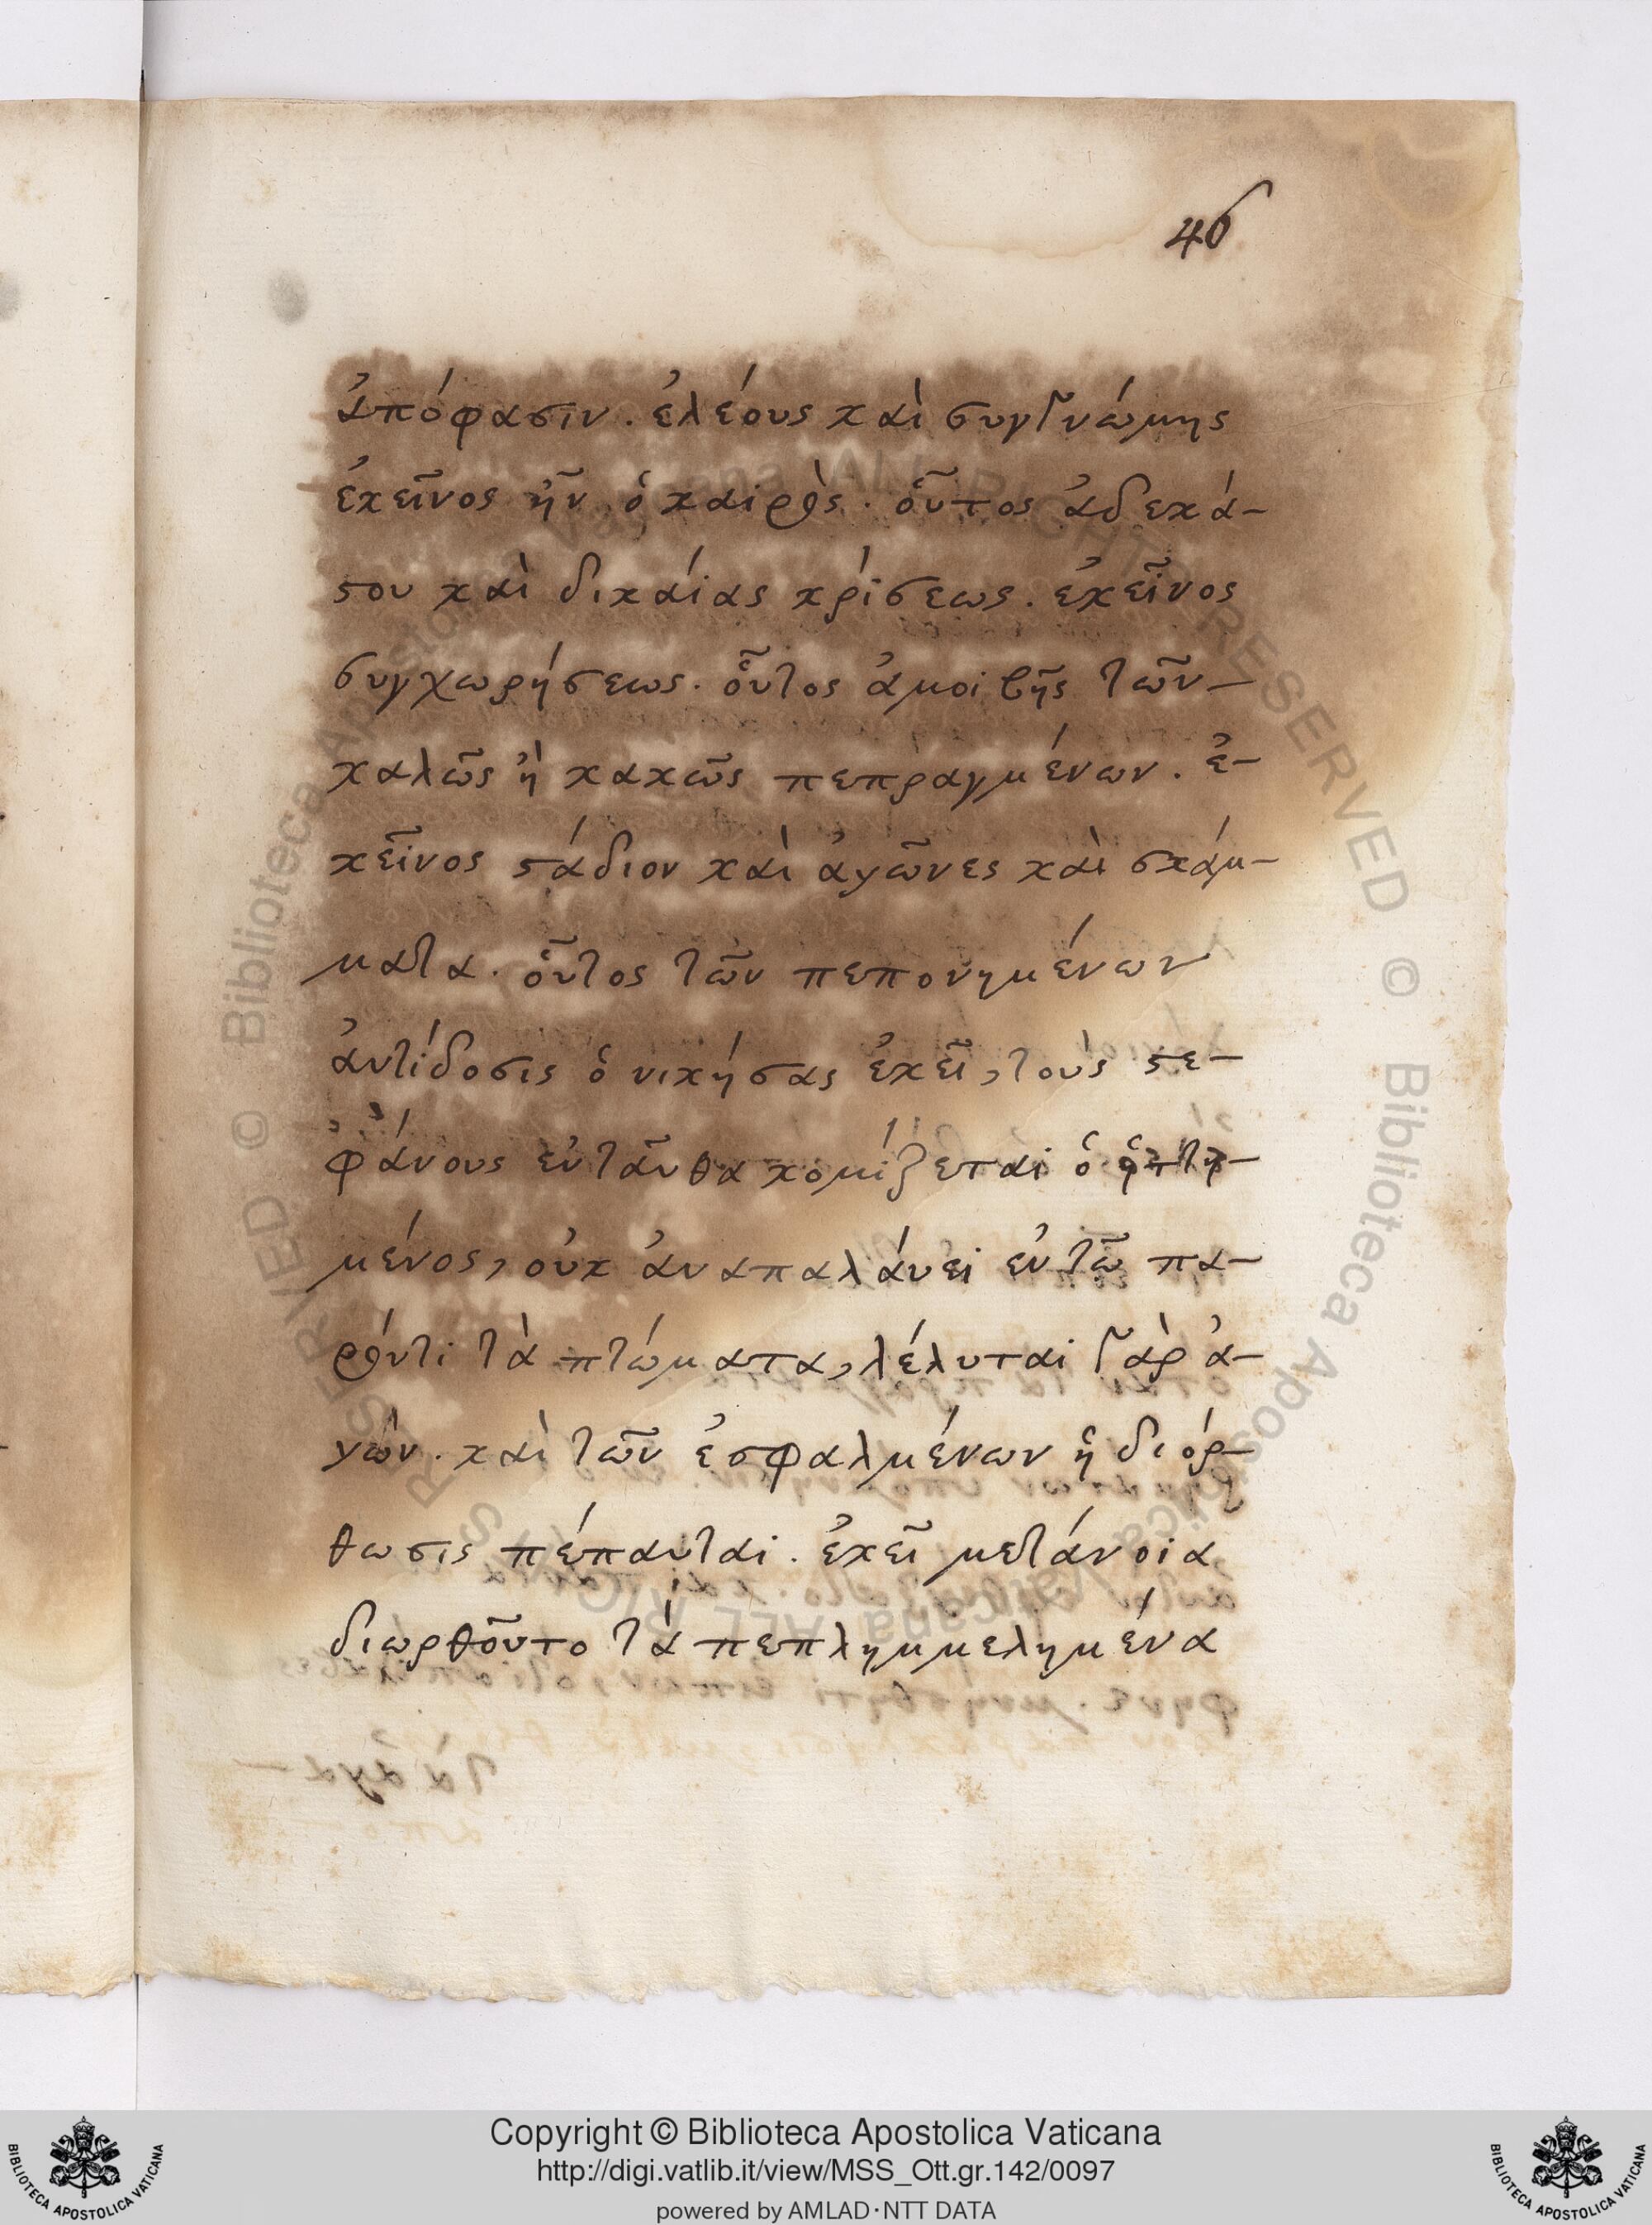 46
ἀπόφασιν. ἐλέους καὶ συγγνώμης
ἐκεῖνος ἦν ὁ καιρὸς. οὗτος ἀδεκά-
στου καὶ δικαίας κρίσεως. ἐκεῖνος
συγχωρήσεως. οὗτος ἀμοιβῆς τῶν
καλῶς ἢ κακῶς πεπραγμένων. ἐ-
κεῖνος στάδιον καὶ ἀγῶνες καὶ σκάμ-
ματα. οὗτος τῶν πεπονημένων
ἀντίδοσις ὁ νικήσας ἐκεῖ, τοὺς στε-
φάνους ἐνταῦθα κομίζεται ὁ
μένος, οὐκ ἀναπαλάνει ἐν τῶ πα-
ρόντι τὰ πτώματα, λέλυται γὰρ ἀ-
γών. καὶ τῶν ἐσφαλμένων ἡ διόρ-
θωσις πέπαυται. ἐκεῖ μετάνοια
διωρθοῦτο τὰ πεπλημμελημένα
Copyright © Biblioteca Apostolica Vaticana
http://digi.vatlib.it/view/MSS_Ott.gr.142/0097
powered by AMLAD·NTT DATA
BIBLIOTECA APOSTOLICA VATICANA
BIBLIOTECA APOSTOLICA VATICANA